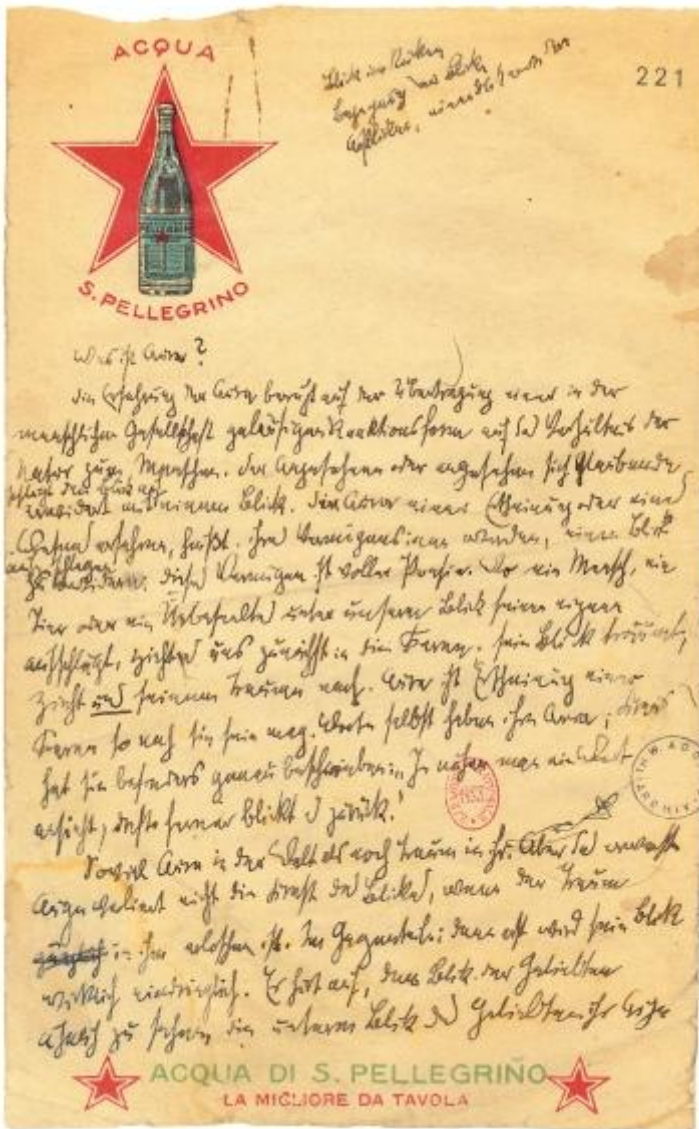 ACQUA
S. PELLEGRINO
221
Blick im Rücken
Begegnung der Blicke
Was ist Aura?
Die Erfahrung der Aura beruht auf der Übertragung einer in der
menschlichen Gesellschaft geläufigen Reaktionsform auf das Verhältnis der
Natur zum Menschen. Der Angesehene oder angesehen sich Glaubende
schlägt den Blick auf
erwidert mit einem Blick. Die Aura einer Erscheinung oder eines
Wesens erfahren, heißt, ihres Vermögens inne werden, einen Blick
aufzuschlagen
zu erwidern. Dieses Vermögen ist voller Poesie. Wo ein Mensch, ein
Tier oder ein Unbeseeltes unter unserm Blick seinen eignen
aufschlägt, zieht es uns zunächst in die Ferne. sein Blick träumt,
zieht uns seinem Traume nach. Aura ist Erscheinung einer
Ferne so nah sie sein mag. Worte selbst haben ihre Aura;
hat sie besonders genau beschrieben: „Je näher man ein Wort
ansieht, desto ferner blickt es zurück."
Soviel Aura in der Welt als noch Traum in ihr. Aber das erwachte
Auge verlernt nicht die Kunst des Blicks, wenn der Traum
in ihm erloschen ist. Im Gegenteil: dann erst wird sein Blick
wirklich eindringlich. Er hört auf, dem Blick der Geliebten
ähnlich zu sehen die unterm Blick des Geliebten ihr Auge
ACQUA DI S. PELLEGRINO
LA MIGLIORE DA TAVOLA